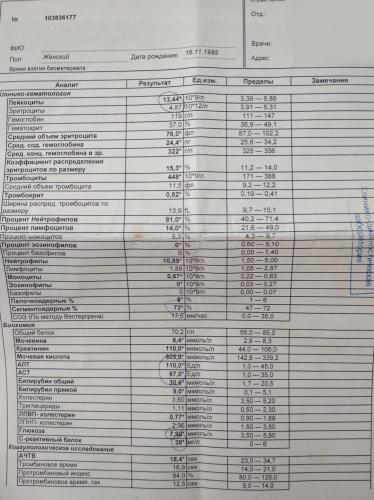 № 103836177
Отд.:
ФИО:
Врачи:
Пол: Женский Дата рождения: 16.11.1985
Адрес:
Время взятия биоматериала
Аналит Результат Ед.изм. Пределы Замечания
Клинико-гематология
Лейкоциты 13,44* 10*9/л 3,39 — 8,86
Эритроциты 4,87 10*12/л 3,91 — 5,31
Гемоглобин 119 г/л 111 — 147
Гематокрит 37,0 % 36,9 — 49,1
Средний объем эритроцита 76,0* фл 87,0 — 102,2
Сред. сод. гемоглобина 24,4* пг 25,6 — 34,2
Сред. конц. гемоглобина в эр. 322* г/л 325 — 356
Коэффициент распределения
эритроцитов по размеру 15,3* % 11,2 — 14,0
Тромбоциты 448* 10*9/л 171 — 388
Средний объем тромбоцита 11,5 фл 9,2 — 12,2
Тромбокрит 0,52* % 0,19 — 0,41
Ширина распред. тромбоцитов по
размеру 13,9 fL 9,7 — 15,1
Процент Нейтрофилов 81,0* % 40,2 — 71,4
Процент лимфоцитов 14,0* % 21,6 — 49,0
Процент моноцитов 5,0 % 4,3 — 9,7
Процент эозинофилов 0* % 0,60 — 5,10
Процент базофилов 0 % 0,00 — 1,40
Нейтрофилы 10,89* 10*9/л 1,50 — 5,00
Лимфоциты 1,88 10*9/л 1,05 — 2,87
Моноциты 0,67* 10*9/л 0,22 — 0,63
Эозинофилы 0* 10*9/л 0,03 — 0,27
Базофилы 0 10*9/л 0,00 — 0,07
Палочкоядерные % 8* % 1 — 6
Сегментоядерные % 73* % 47 — 72
СОЭ (По методу Вестергрена) 17,0 мм/час 0,0 — 35,0
Биохимия
Общий белок 70,2 г/л 65,0 — 85,0
Мочевина 8,4* ммоль/л 2,8 — 8,3
Креатинин 110,0* мкмоль/л 44,0 — 106,0
Мочевая кислота 605,0* мкмоль/л 142,8 — 339,2
АЛТ 110,0* Ед/л 1,0 — 45,0
АСТ 67,0* Ед/л 1,0 — 35,0
Билирубин общий 30,6* мкмоль/л 1,7 — 20,5
Билирубин прямой 9,0* мкмоль/л 0,1 — 5,1
Холестерин 3,60 ммоль/л 3,50 — 5,20
Триглицериды 1,11 ммоль/л 0,50 — 2,30
ЛПВП- холестерин 0,77* ммоль/л 0,90 — 1,89
ЛПНП- холестерин ммоль/л 1,50 — 3,50
Глюкоза 7,90* ммоль/л 3,50 — 5,80
С-реактивный белок 38* мг/л 0 — 6
Коагулологическое исследование
АЧТВ 18,4* сек 23,0 — 34,7
Тромбиновое время 16,9 сек 14,0 — 21,0
Протромбиновый индекс 84,0 % 80,0 — 125,0
Протромбиновое время, сек 12,5 сек 9,0 — 14,0